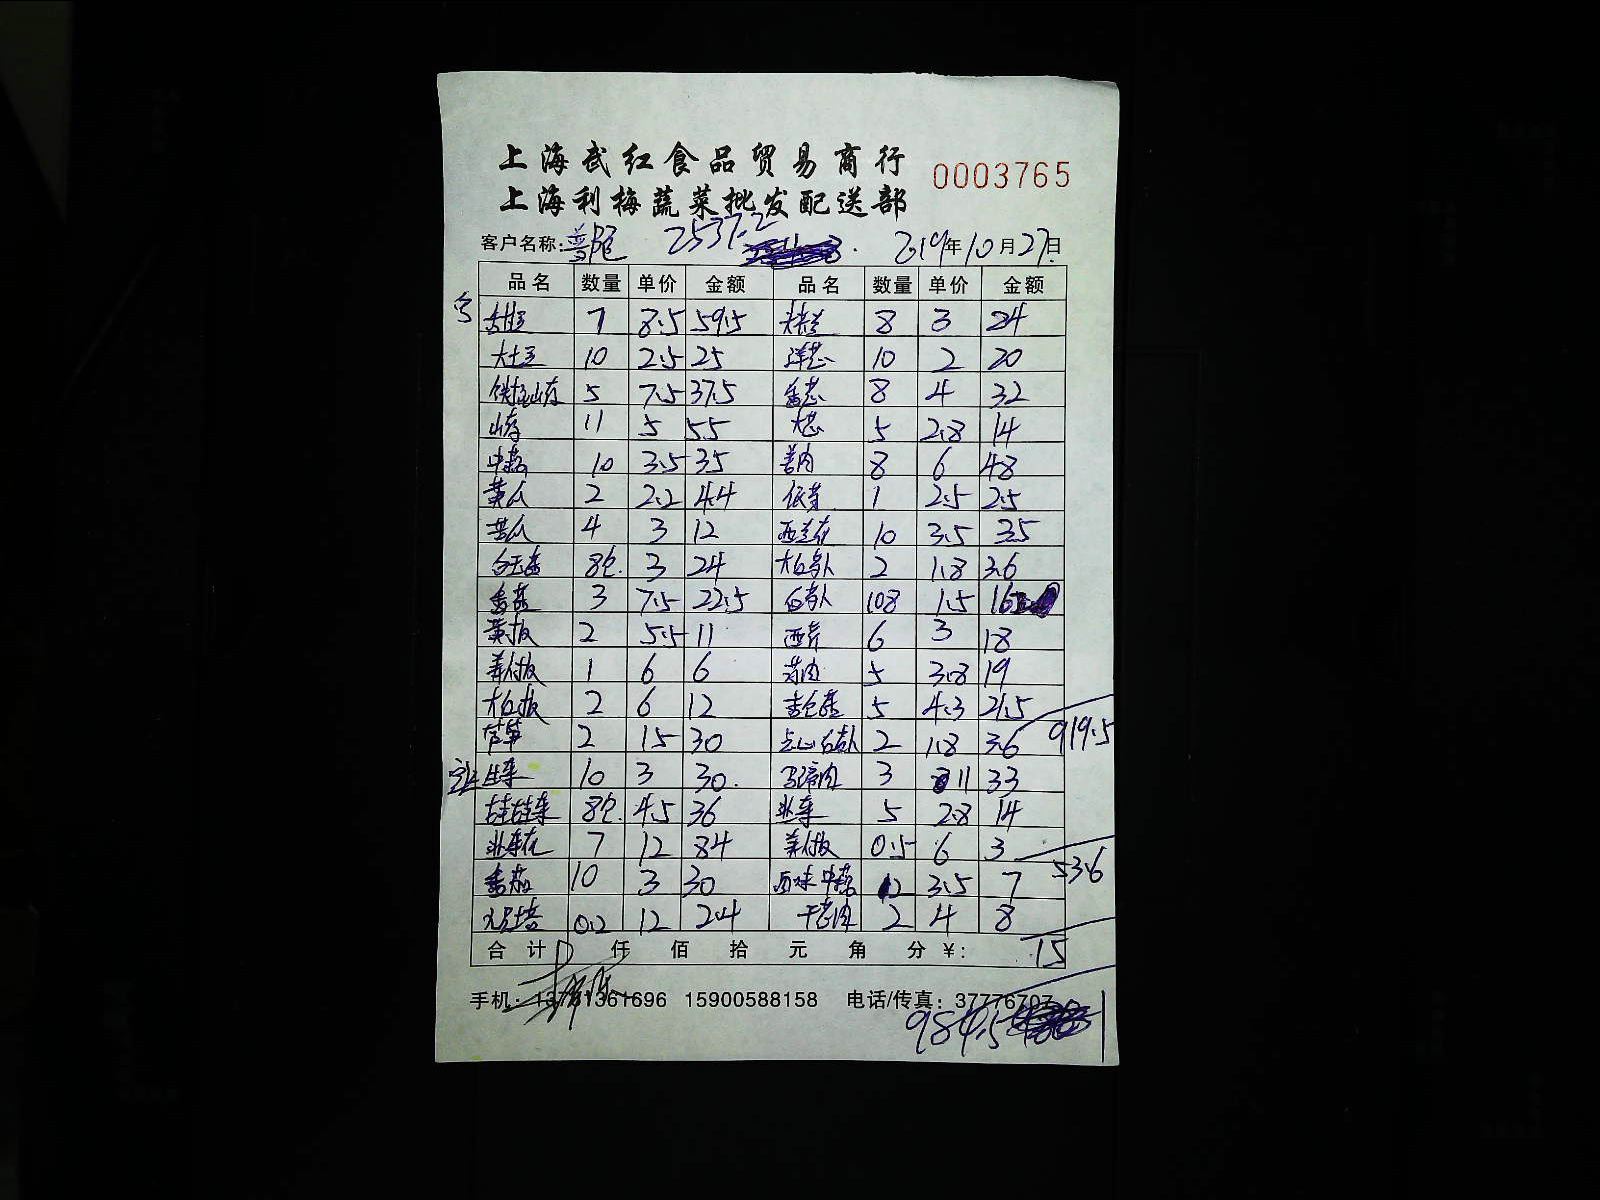 上海武红食品贸易商行
0003765
上海利梅蔬菜批发配送部
2537.2
客户名称: 普陀 2019年10月27日
品名 数量 单价 金额 品名 数量 单价 金额
7 8.5 59.5 8 3 24
大土豆 10 2.5 25 洋葱 10 2 20
铁棍山药 5 7.5 37.5 香葱 8 4 32
山药 11 5 55 大葱 5 2.8 14
中菇 10 3.5 35 姜肉 8 6 48
黄瓜 2 2.2 4.4 银芽 1 2.5 2.5
苦瓜 4 3 12 西兰花 10 3.5 35
白玉菇 8包 3 24 2 1.8 3.6
香菇 3 7.5 22.5 108 1.5 162
黄椒 2 5.5 11 西芹 6 3 18
1 6 6 5 3.8 19
2 6 12 5 4.3 21.5
芦笋 2 15 30 2 1.8 3.6
919.5
生菜 10 3 30. 马蹄肉 3 11 33
娃娃菜 8包 4.5 36 韭菜 5 2.8 14
韭菜花 7 12 84 0.5 6 3
53.6
番茄 10 3 30 中菇 2 3.5 7
0.2 12 2.4 2 4 8
合计 仟 佰 拾 元 角 分 ¥: 15
手机: 13761361696 15900588158 电话/传真: 37776707
984.5